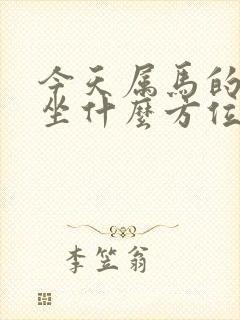 今天属馬的
坐什麼方位
李笠翁